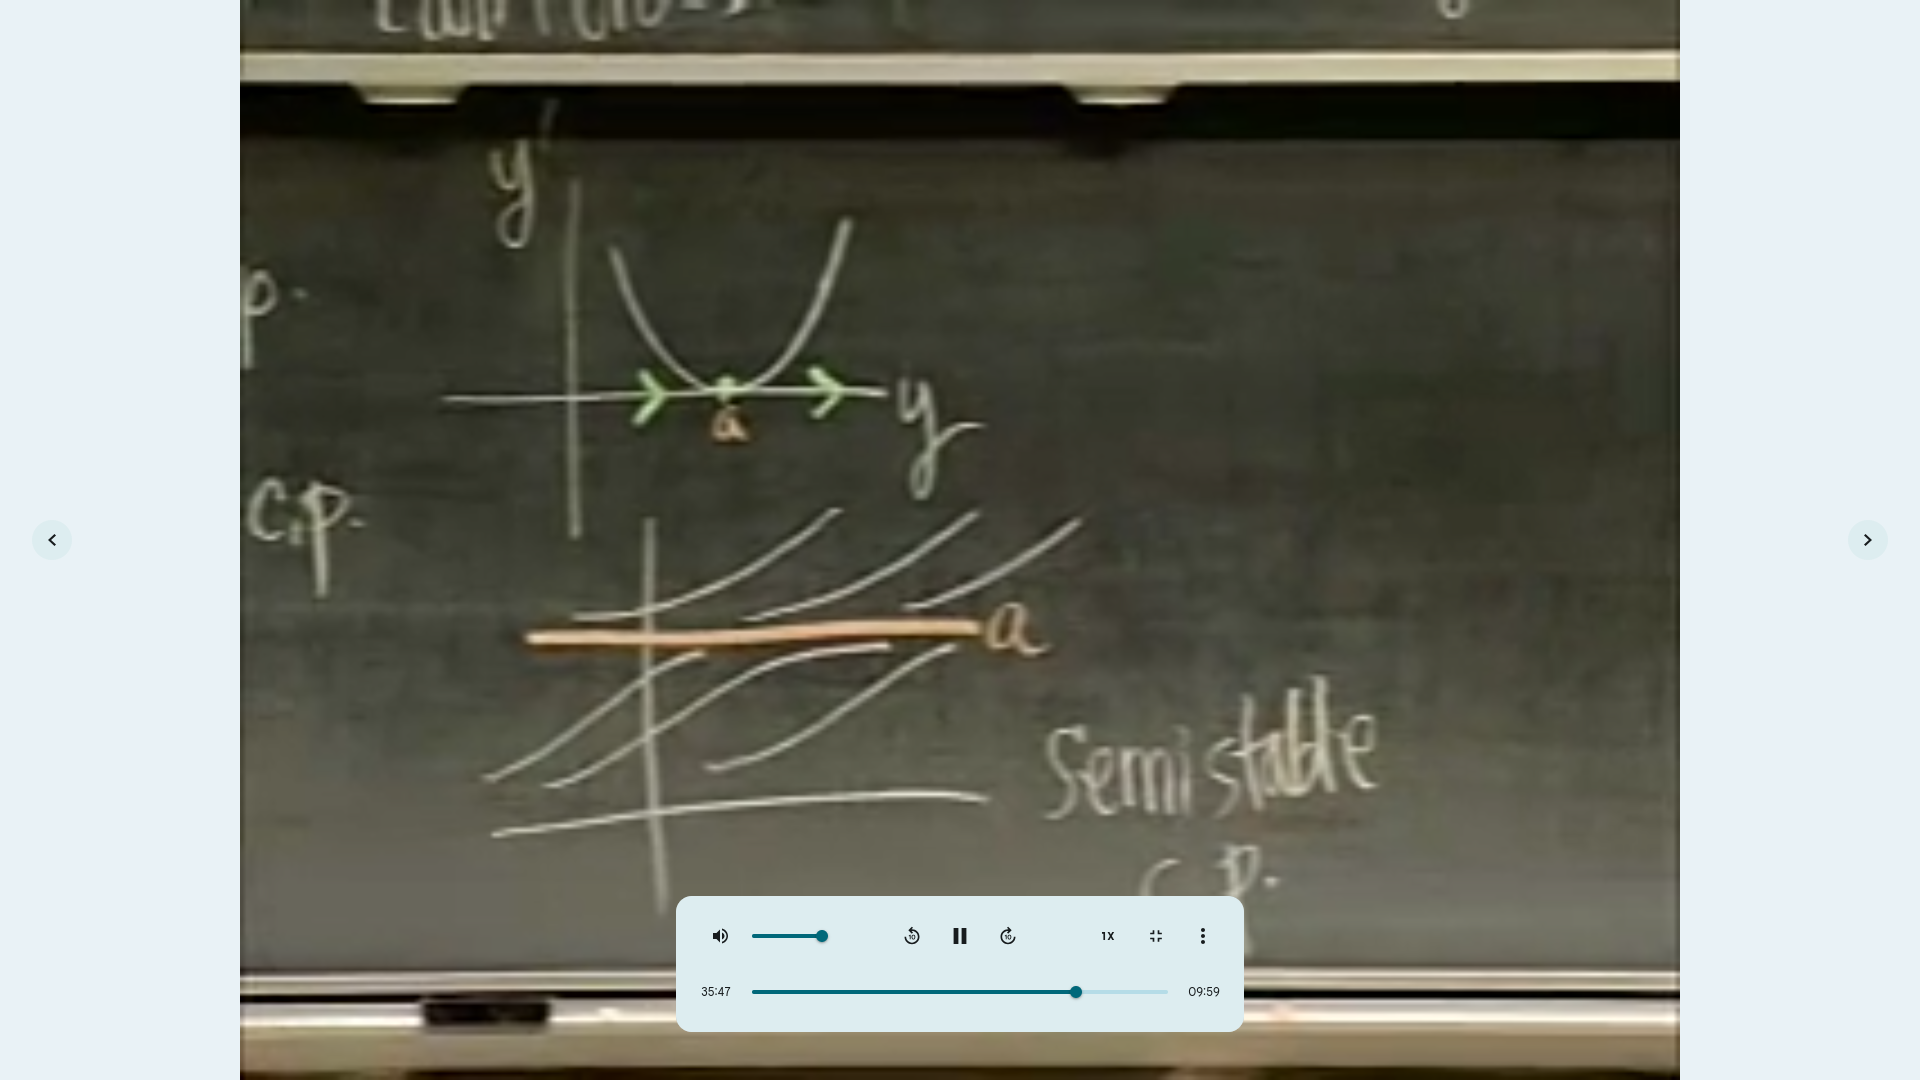 y'
p.
a
y
c.p.
a
Semistable
c.p.
10
10
1X
35:47
09:59